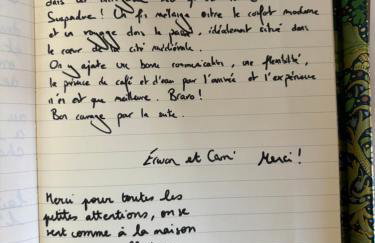 dans ce
Superbe ! Un fin mélange entre le confort moderne
et un voyage dans le passé, idéalement situé dans
le cœur de la cité médiévale.
On y ajoute une bonne communication, une flexibilité,
le prince de café et d'eau par l'arrivée et l'expérience
n'en est que meilleure. Bravo !
Bon courage par la suite.
Erwan et Cam' Merci !
Merci pour toutes les
petites attentions, on se
sent comme à la maison